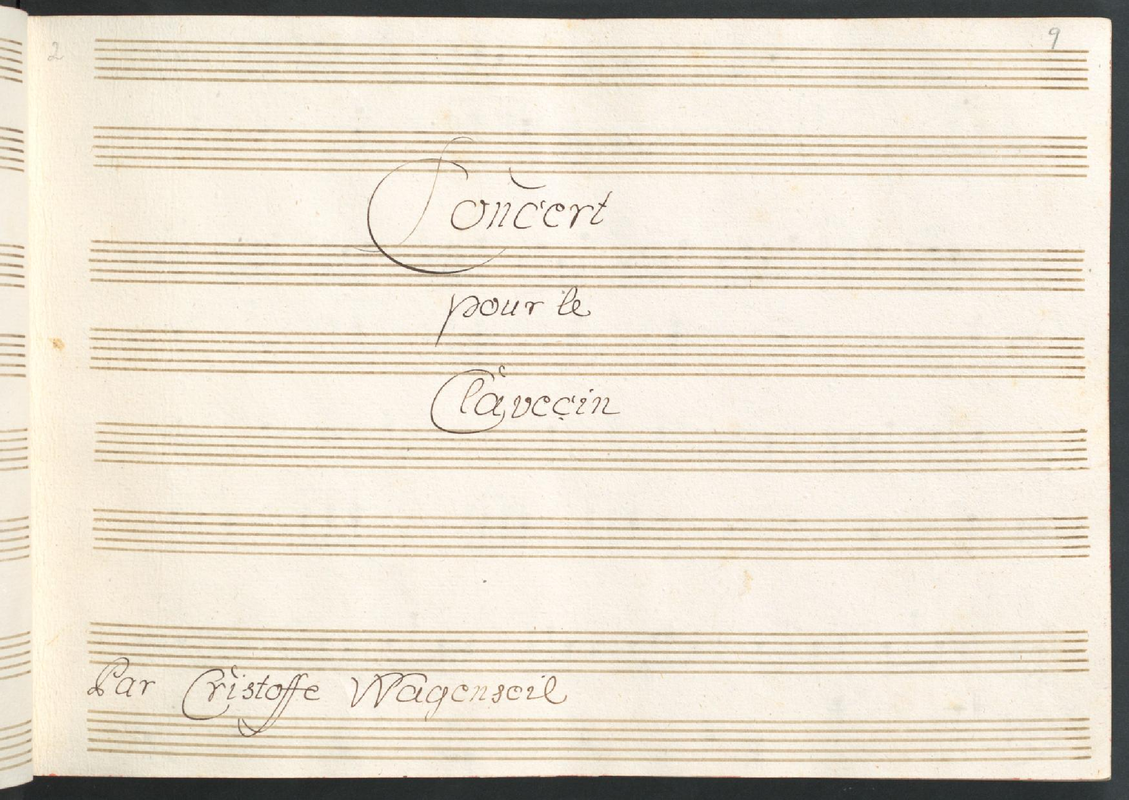 2
9
Concert
pour le
Clavecin
Par Cristoffe Wagenseil